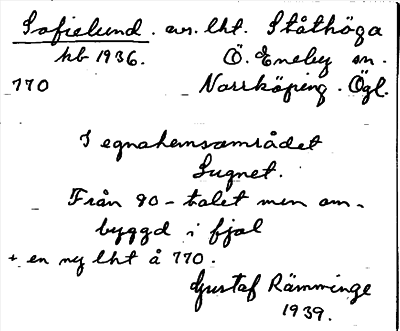 Sofielund. avs. lht. Ståthöga
hb 1936. Ö. Eneby sn.
770 Norrköping. Ögl.
I egnahemsområdet
Lugnet.
Från 90-talet men om-
byggd i fjol
+ en ny lht å 770.
Gustaf Rämminge
1939.